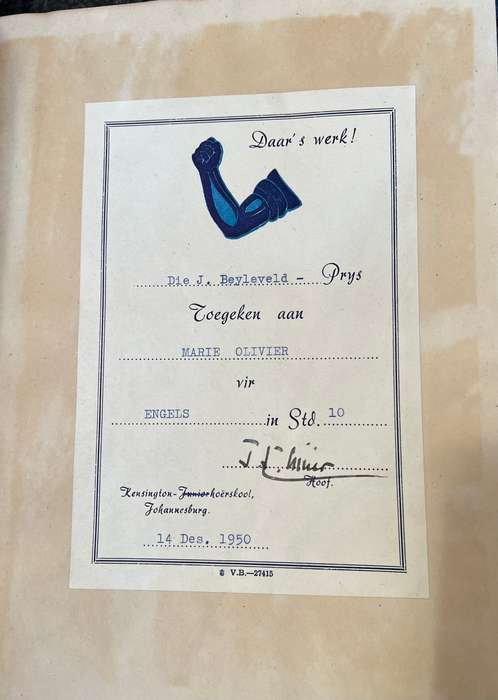 Daar's werk!
Die J. Beyleveld - Prys
Toegeken aan
MARIE OLIVIER
vir
ENGELS in Std. 10
Hoof.
Kensington-Juniorhoërskool,
Johannesburg.
14 Des. 1950
V.B.—27415